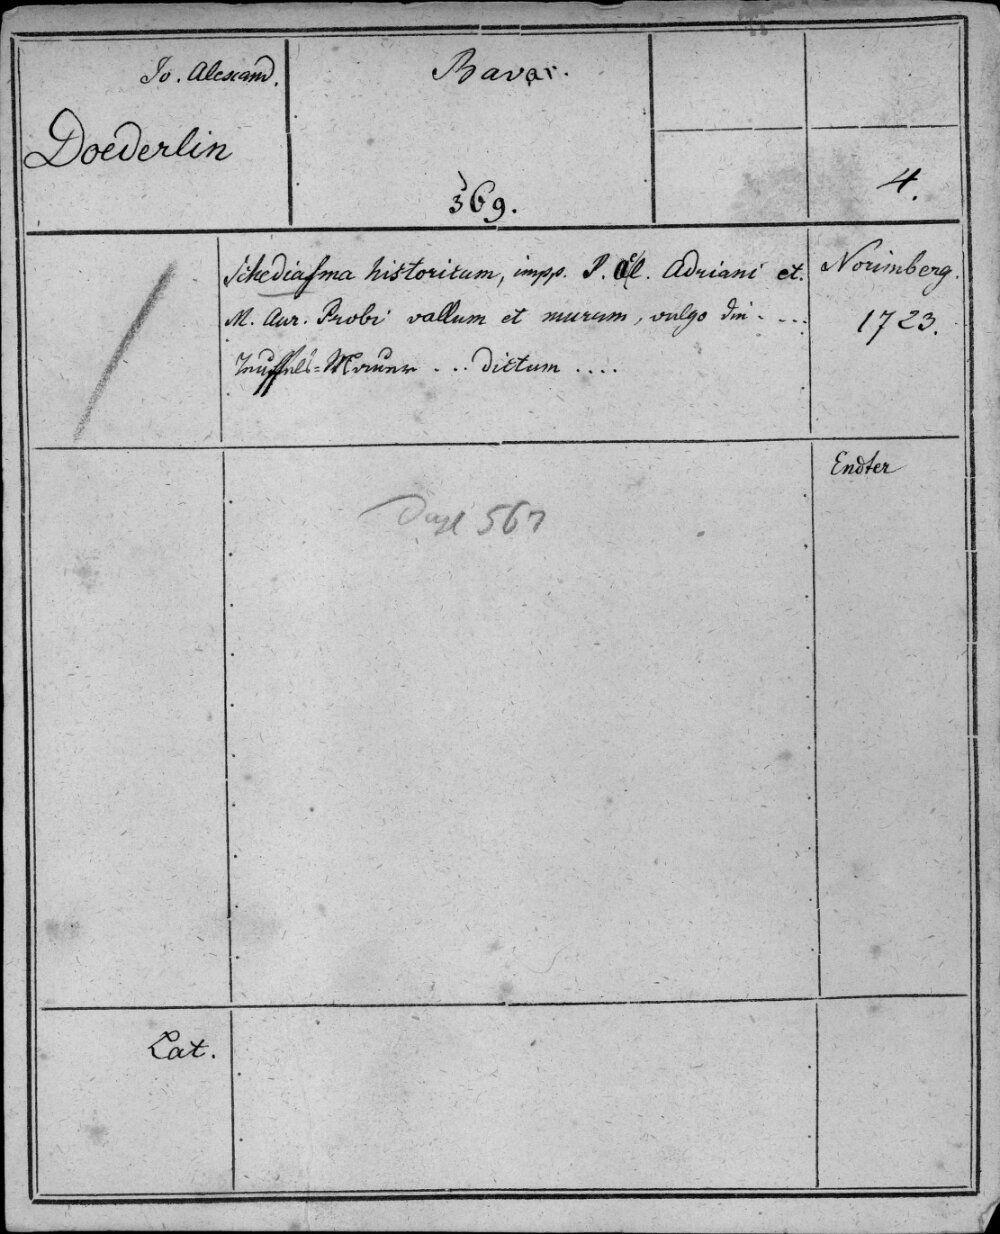 Jo. Alexand.
Doederlin
Bavar.
369.
4.
Schediasma historicum, impp. P. Æl. Adriani et
M. Aur. Probi vallum et murum, vulgo din . . . .
Teuffels=Mauer . . . dictum . . . .
Norimberg.
1723.
Endter
567
Lat.